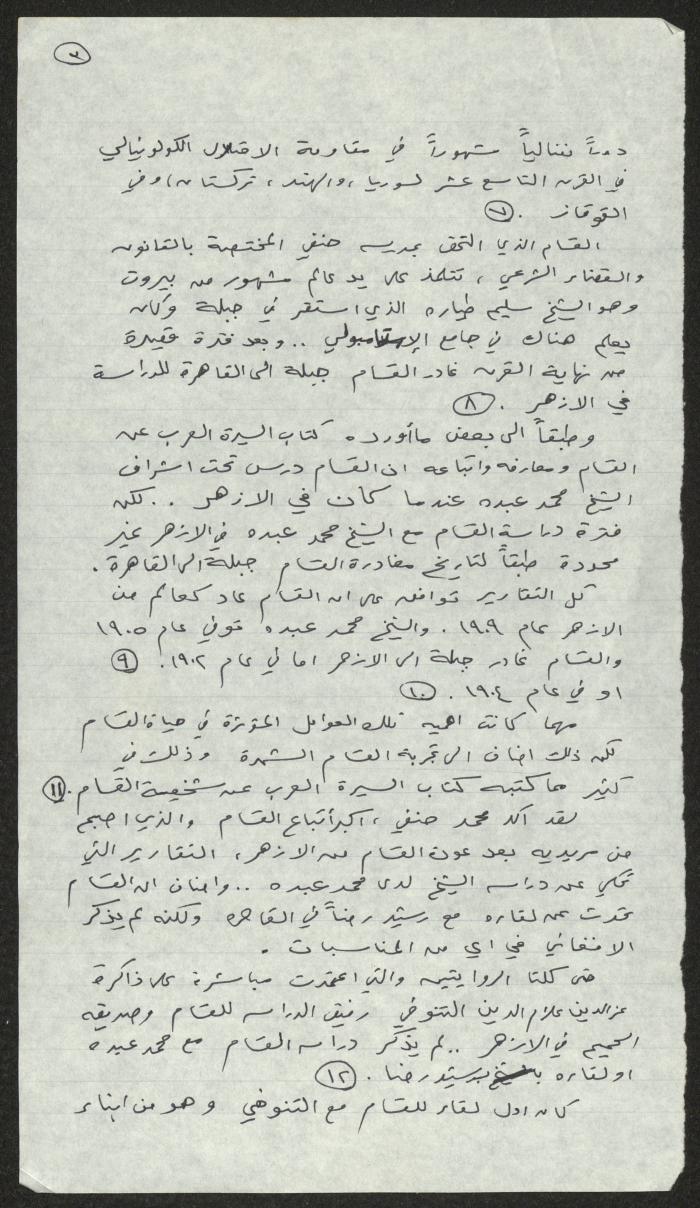 ٣
دوراً نضالياً مشهوراً في مقاومة الاحتلال الكولونيالي
في القرن التاسع عشر لسوريا، والهند، تركستان، وفي
القوقاز . ٧
القسام الذي التحق بمدرسه حنفي المختصة بالقانون
والقضاء الشرعي ، تتلمذ على يد عالم مشهور من بيروت
وهو الشيخ سليم طياره الذي استقر في جبلة وكان
يعلم هناك في جامع الإستامبولي .. وبعد فترة قصيرة
من نهاية القرن غادر القسام جبلة الى القاهرة للدراسة
في الازهر . ٨
وطبقاً الى بعض ما أورده كتاب السيرة العرب عن
القسام ومعارفه واتباعه ان القسام درس تحت اشراف
الشيخ محمد عبده عندما كان في الازهر .. لكن
فترة دراسة القسام مع الشيخ محمد عبده في الازهر غير
محدودة طبقاً لتاريخ مغادرة القسام جبلة الى القاهرة .
كل التقارير توافق على ان القسام عاد كعالم من
الازهر عام ١٩٠٩ . والشيخ محمد عبده توفي عام ١٩٠٥
والقسام غادر جبلة الى الازهر اما في عام ١٩٠٢ . ٩
او في عام ١٩٠٤ . ١٠
مهما كانت اهميه تلك العوامل المؤثرة في حياة القسام
لكن ذلك اضاف الى تجربة القسام الشهرة وذلك في
كثير مما كتبه كتاب السيرة العرب عن شخصية القسام . ١١
لقد اكد محمد حنفي ، اكبر أتباع القسام والذي اصبح
من مريديه بعد عودة القسام من الازهر ، التقارير التي
تحكي عن دراسه الشيخ لدى محمد عبده .. واضاف ان القسام
تحدث عن لقاءه مع رشيد رضا في القاهره ولكنه لم يذكر
الافغاني في اي من المناسبات .
حتى كلتا الروايتين والتي اعتمدت مباشرة على ذاكرة
عزالدين علام الدين التنوخي رفيق الدراسه للقسام وصديقه
الحميم في الازهر .. لم يذكر دراسه القسام مع محمد عبده
او لقاءه برشيد رضا . ١٢
كان اول لقاء للقسام مع التنوخي وهو من ابناء